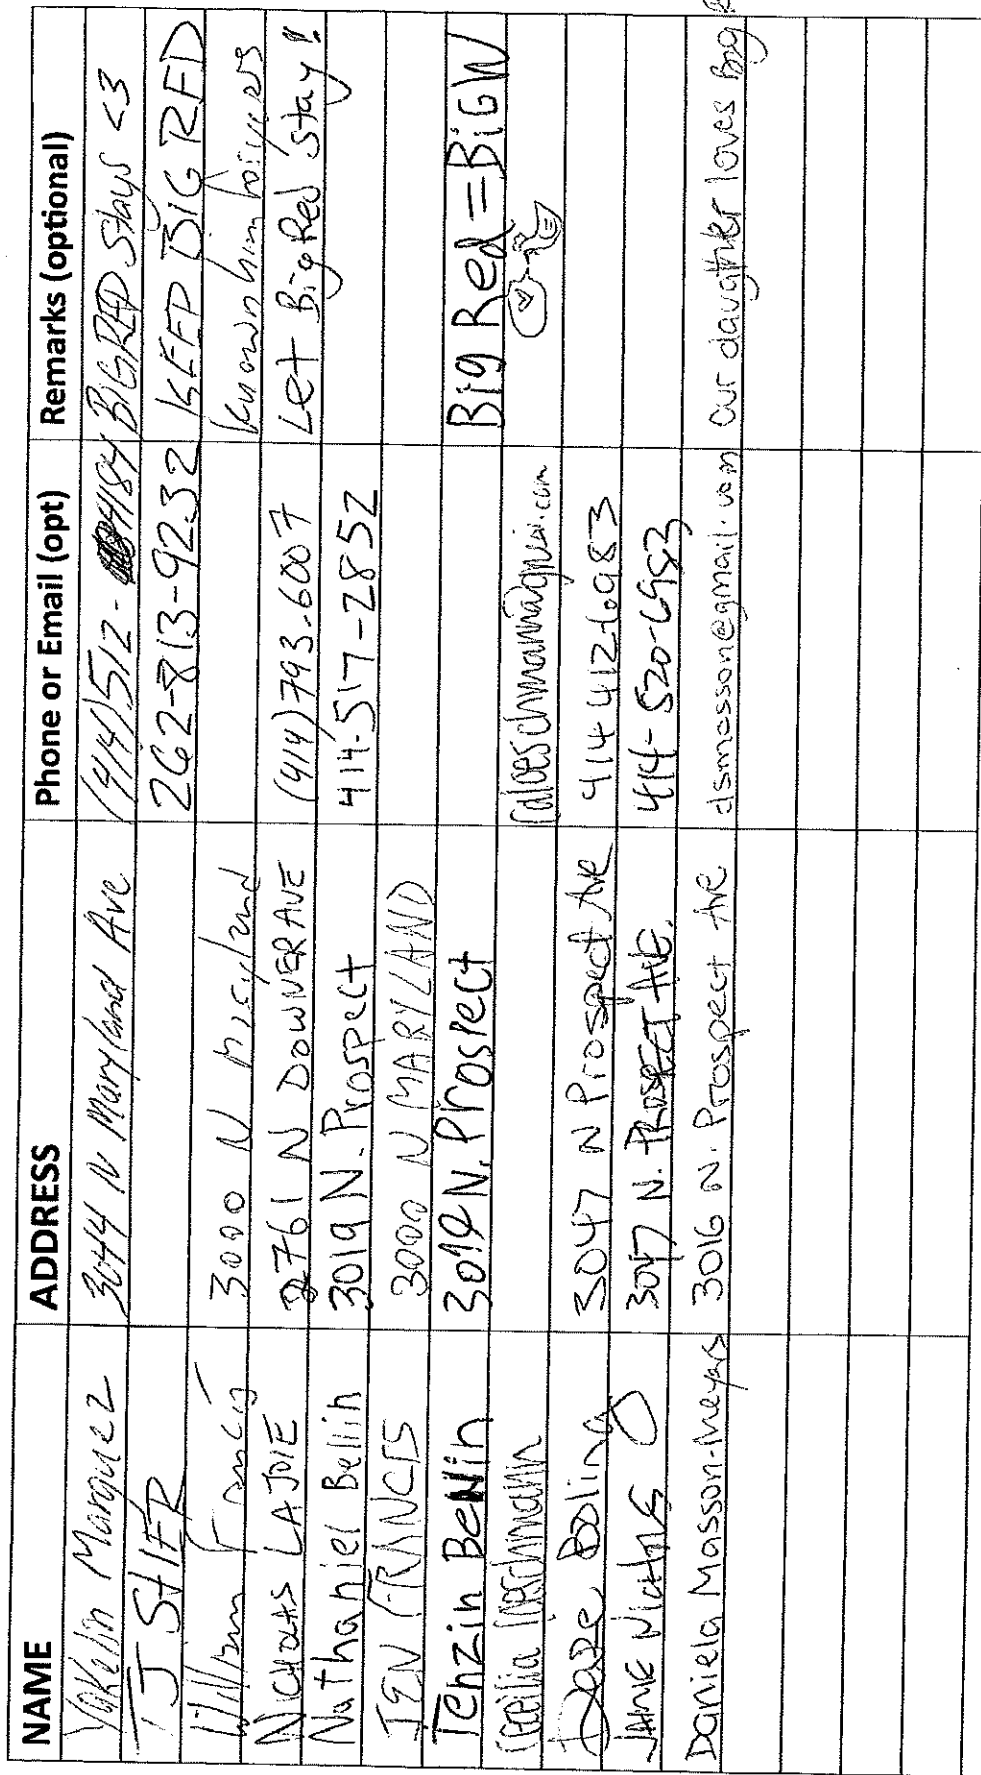 NAME ADDRESS Phone or Email (opt) Remarks (optional)
Yakelin Marquez 3044 N Maryland Ave (414)512-4484 BIG RED Stays <3
TJ SHIER 262-813-9232 KEEP BIG RED
William Francis 3000 N Maryland known him
NICHOLAS LAJOIE 2761 N DOWNER AVE (414)793.6007 Let Big Red Stay!!
Nathaniel Bellin 3019 N. Prospect 414-517-2852
JEN FRANCIS 3000 N MARYLAND
Tenzin BeNin 3019 N. Prospect Big Red = BiG W
Cecilia Loeschmann
Dave Boling 3047 N Prospect Ave 414 412 6983
JANE 3047 N. PROSPECT AVE. 414-520-6983
Daniela Masson-Meyers 3016 N. Prospect Ave dsmasson@gmail.com Our daughter loves Big